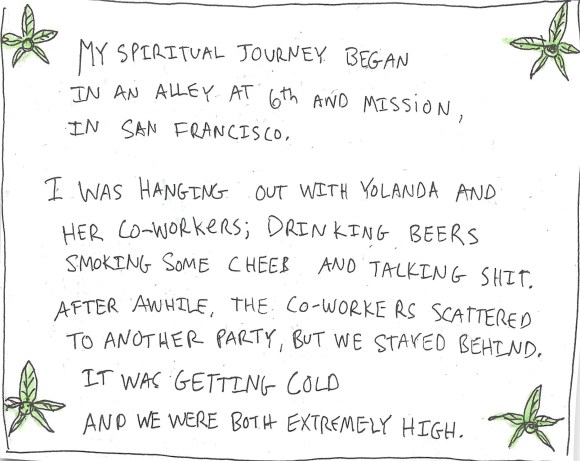 MY SPIRITUAL JOURNEY BEGAN
IN AN ALLEY AT 6th AND MISSION,
IN SAN FRANCISCO.
I WAS HANGING OUT WITH YOLANDA AND
HER CO-WORKERS; DRINKING BEERS
SMOKING SOME CHEEB AND TALKING SHIT.
AFTER AWHILE, THE CO-WORKERS SCATTERED
TO ANOTHER PARTY, BUT WE STAYED BEHIND.
IT WAS GETTING COLD
AND WE WERE BOTH EXTREMELY HIGH.